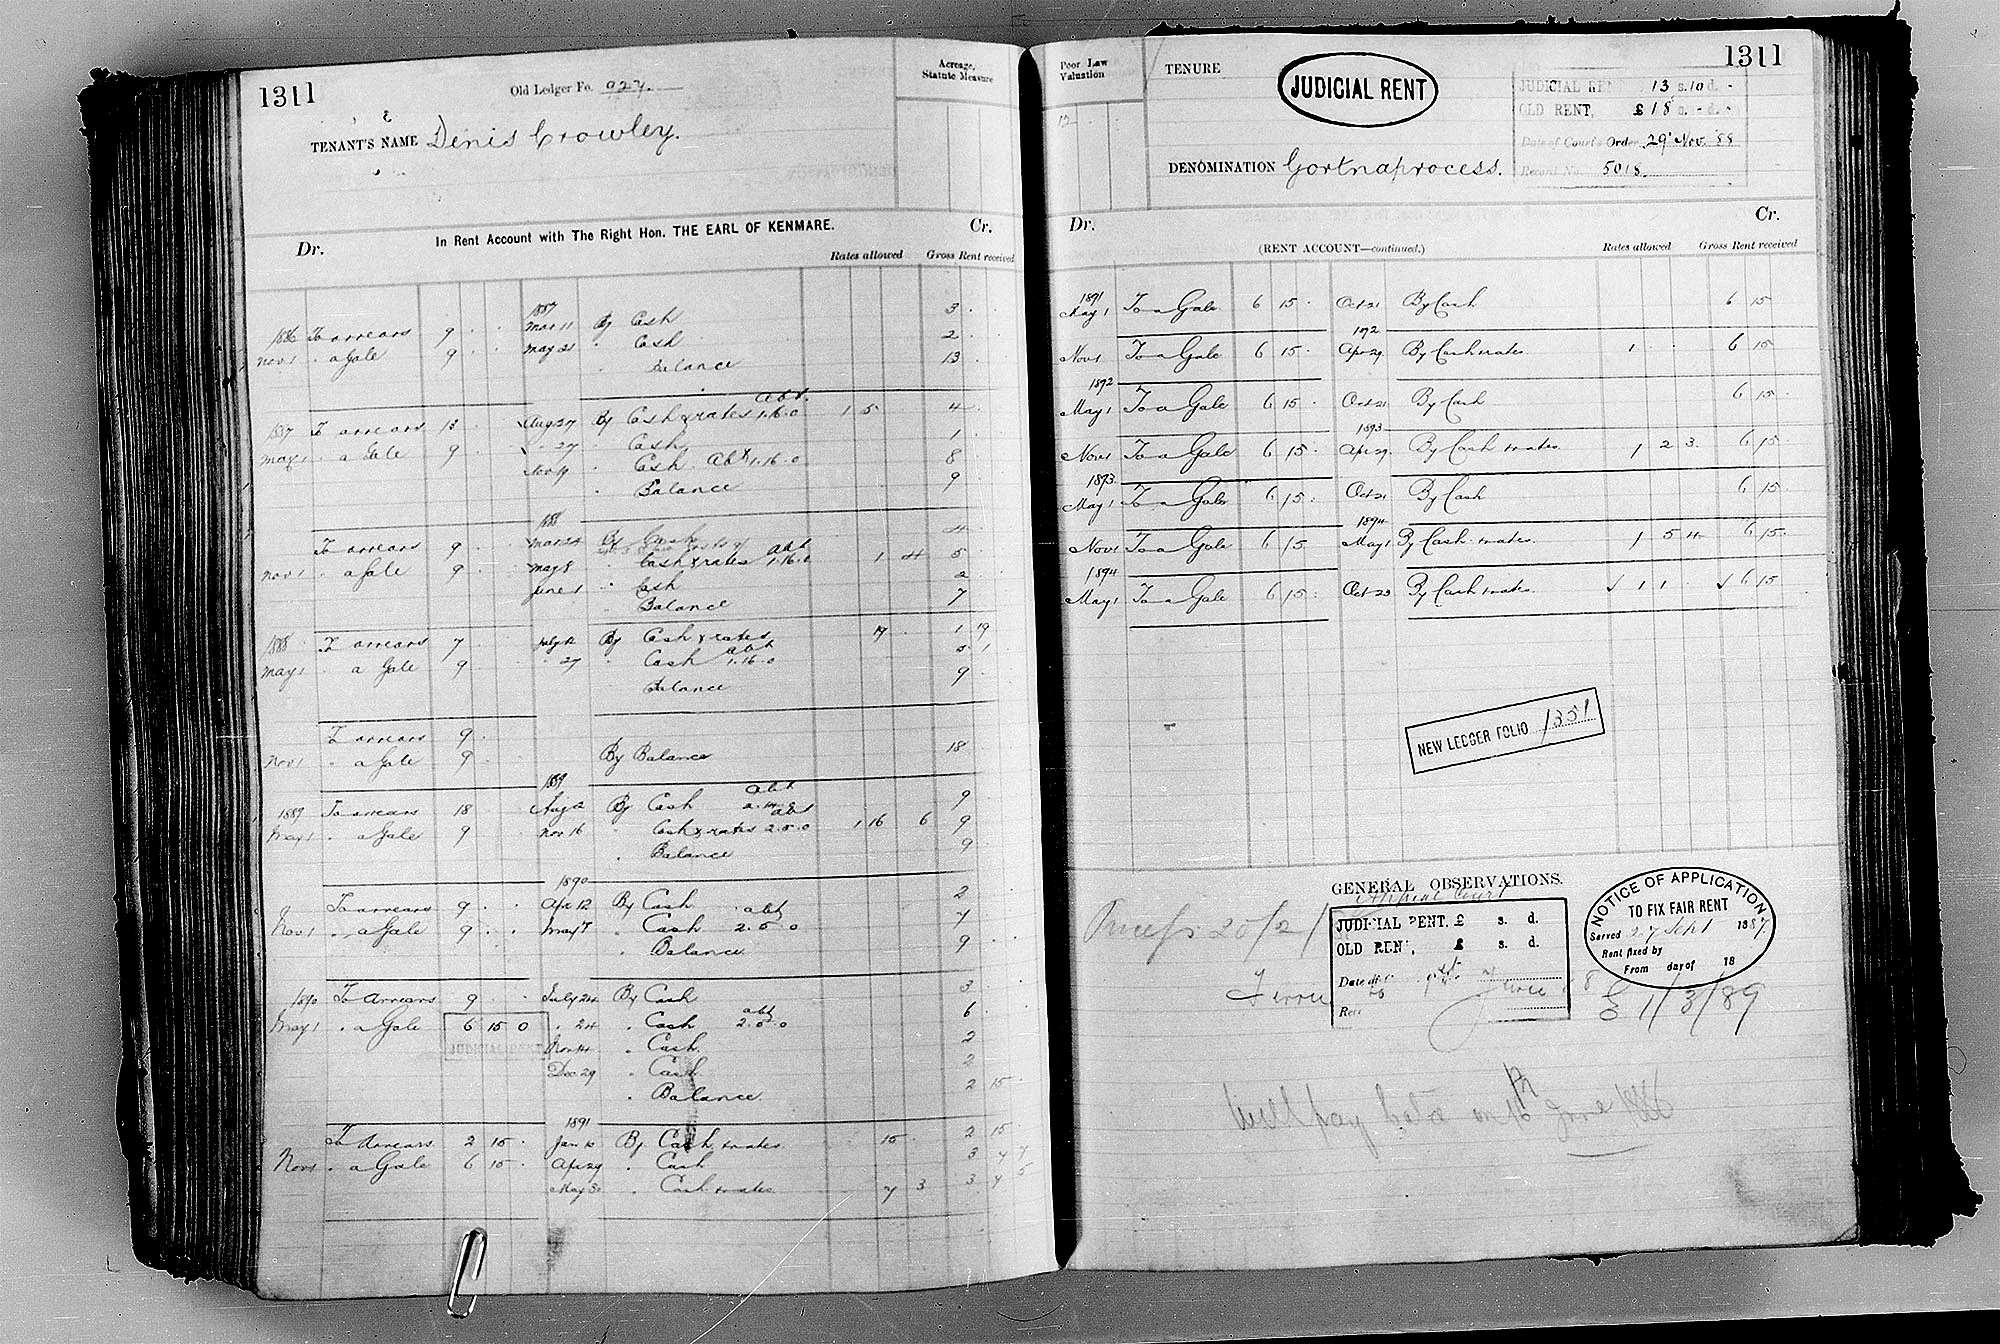 1311
Old Ledger Fo. 927.
Acreage,
Statute Measure
TENANT'S NAME Denis Crowley.
Dr. In Rent Account with The Right Hon. THE EARL OF KENMARE. Cr.
Rates allowed Gross Rent received
1887
1886 To arrears 9 . . Mar 11 By Cash 3 .
Nov 1 . a Gale 9 . . May 21 " Cash 2 .
. Balance 13 .
abt
1887 To arrears 13 . Aug 27 By Cash & rates 1.16.0 1 5 4 .
May 1 . a Gale 9 . " 27 Cash 1 .
Nov 19 . Cash Abt 1.16.0 8
. Balance 9
1888
To arrears 9 . Mar 24 By Cash 4
Nov 1 . a Gale 9 . May 8 " Cash & rates abt 1.16.0 1 4 5
June 1 " Cash 2
. Balance 7
1888 To arrears 7 . July 12 By Cash & rates 19 . 1 19
May 1 . a Gale 9 . . 27 " Cash abt 1.16.0 1
Balance 9
To arrears 9 .
Nov 1 . a Gale 9 . By Balance 18
1889
1889 To arrears 18 . Aug 12 By Cash abt 9
May 1 . a Gale 9 . Nov 16 " Cash & rates abt 2.5.0 1 16 6 9
. Balance 9
1890
To arrears 9 . . Apr 12 By Cash 2
Nov 1 . a Gale 9 . . May 5 . Cash abt 2.5.0 7
. Balance 9
1890 To Arrears 9 . . July 24 By Cash 3 .
May 1 . a Gale 6 15 0 . 24 . Cash abt 2.5.0 6 .
JUDICIAL RENT Nov 14 . Cash 2
Dec 29 . Cash 2
. Balance 2 15 .
1891
To Arrears 2 15 . Jan 10 By Cash & rates 15 . 2 15
Nov 1 . a Gale 6 15 . Apr 29 . Cash 3 7 7
May 30 . Cash & rates 7 3 3 7 5
Poor Law
Valuation
12
TENURE
JUDICIAL RENT
1311
JUDICIAL RENT £13 s.10 d. -
OLD RENT, £18 s. - d. -
Date of Court's Order 29 Nov. 88
Record No. 5018.
DENOMINATION Gortnaprocess.
Dr. (RENT ACCOUNT—continued.) Cr.
Rates allowed Gross Rent received
1891
May 1 To a Gale 6 15 . Oct 21 By Cash 6 15
1892
Nov 1 To a Gale 6 15 . Apr 29 By Cash & rates 1 . . 6 15
1892
May 1 To a Gale 6 15 . Oct 21 By Cash 6 15 .
1893
Nov 1 To a Gale 6 15 . Apr 29 By Cash & rates. 1 2 3 . 6 15 .
1893
May 1 To a Gale 6 15 . Oct 21 By Cash 6 15 .
1894
Nov 1 To a Gale 6 15 May 1 By Cash & rates 1 5 4 6 15 .
1894
May 1 To a Gale 6 15 . Oct 23 By Cash & rates ✓ 1 1 . ✓ 6 15
NEW LEDGER FOLIO 1351
GENERAL OBSERVATIONS.
Court
JUDICIAL RENT, £ s. d.
OLD RENT, £ s. d.
Date of
June
NOTICE OF APPLICATION
TO FIX FAIR RENT
Served 27 Sept 1887
Rent fixed by
From day of 18
20/2/
1/3/89
Will pay on 16th June 1886